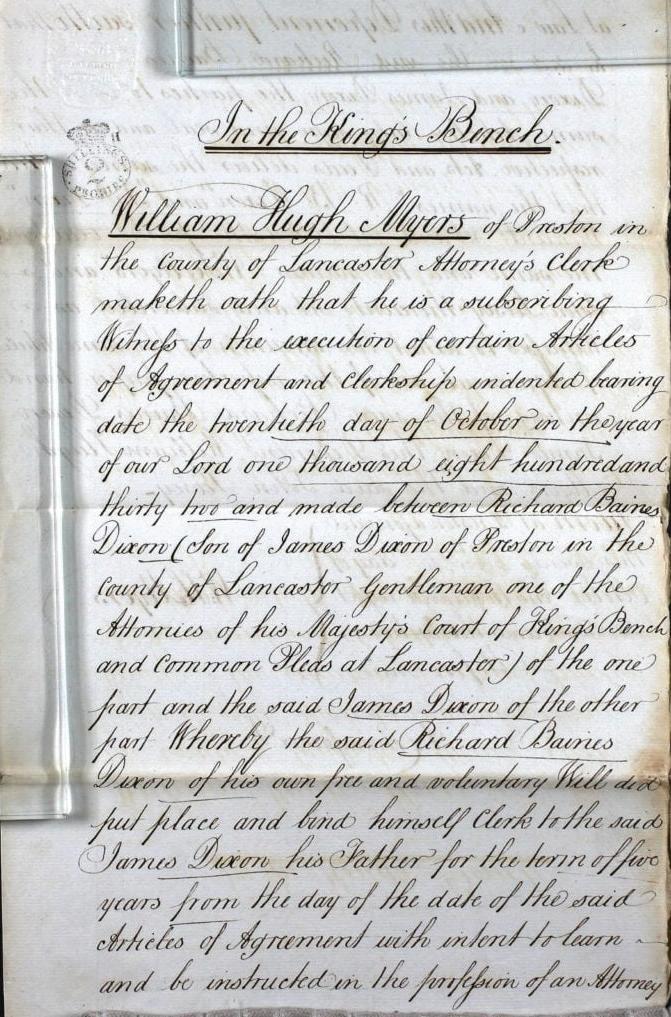 In the King's Bench.
II
SHILLINGS
2
William Hugh Myers of Preston in
the County of Lancaster Attorney's Clerk
maketh oath that he is a subscribing
Witness to the execution of certain Articles
of Agreement and Clerkship indented bearing
date the twentieth day of October in the year
of our Lord one thousand eight hundred and
thirty two and made between Richard Baines
Dixon (Son of James Dixon of Preston in the
County of Lancaster Gentleman one of the
Attornies of his Majesty's Court of King's Bench
and Common Pleas at Lancaster) of the one
part and the said James Dixon of the other
part Whereby the said Richard Baines
Dixon of his own free and voluntary Will did
put place and bind himself Clerk to the said
James Dixon his Father for the term of five
years from the day of the date of the said
Articles of Agreement with intent to learn
and be instructed in the profession of an Attorney